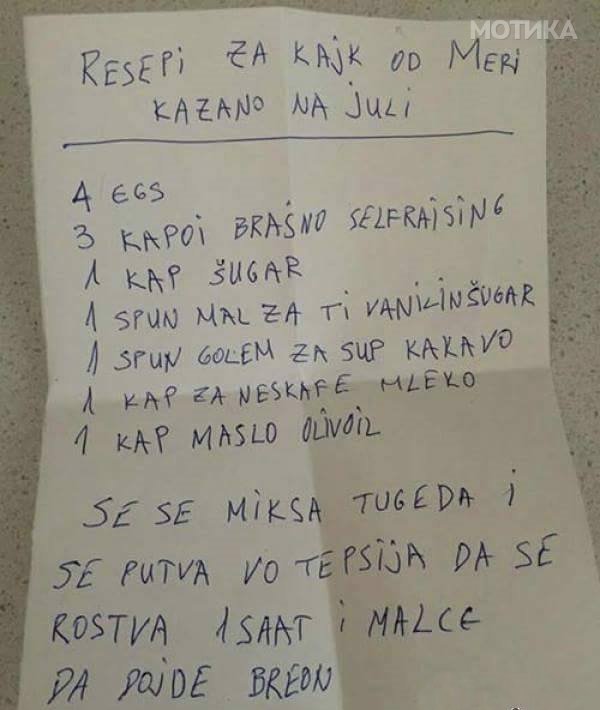 МОТИКА
RESEPI ZA KAJK OD MERI
KAZANO NA JULI
4 EGS
3 KAPOI BRAŠNO SELFRAISING
1 KAP ŠUGAR
1 SPUN MAL ZA TI VANILINŠUGAR
1 SPUN GOLEM ZA SUP KAKAVO
1 KAP ZA NESKAFE MLEKO
1 KAP MASLO OLIVOIL
SE SE MIKSA TUGEDA I
SE PUTVA VO TEPSIJA DA SE
ROSTVA 1 SAAT I MALCE
DA DOJDE BREON